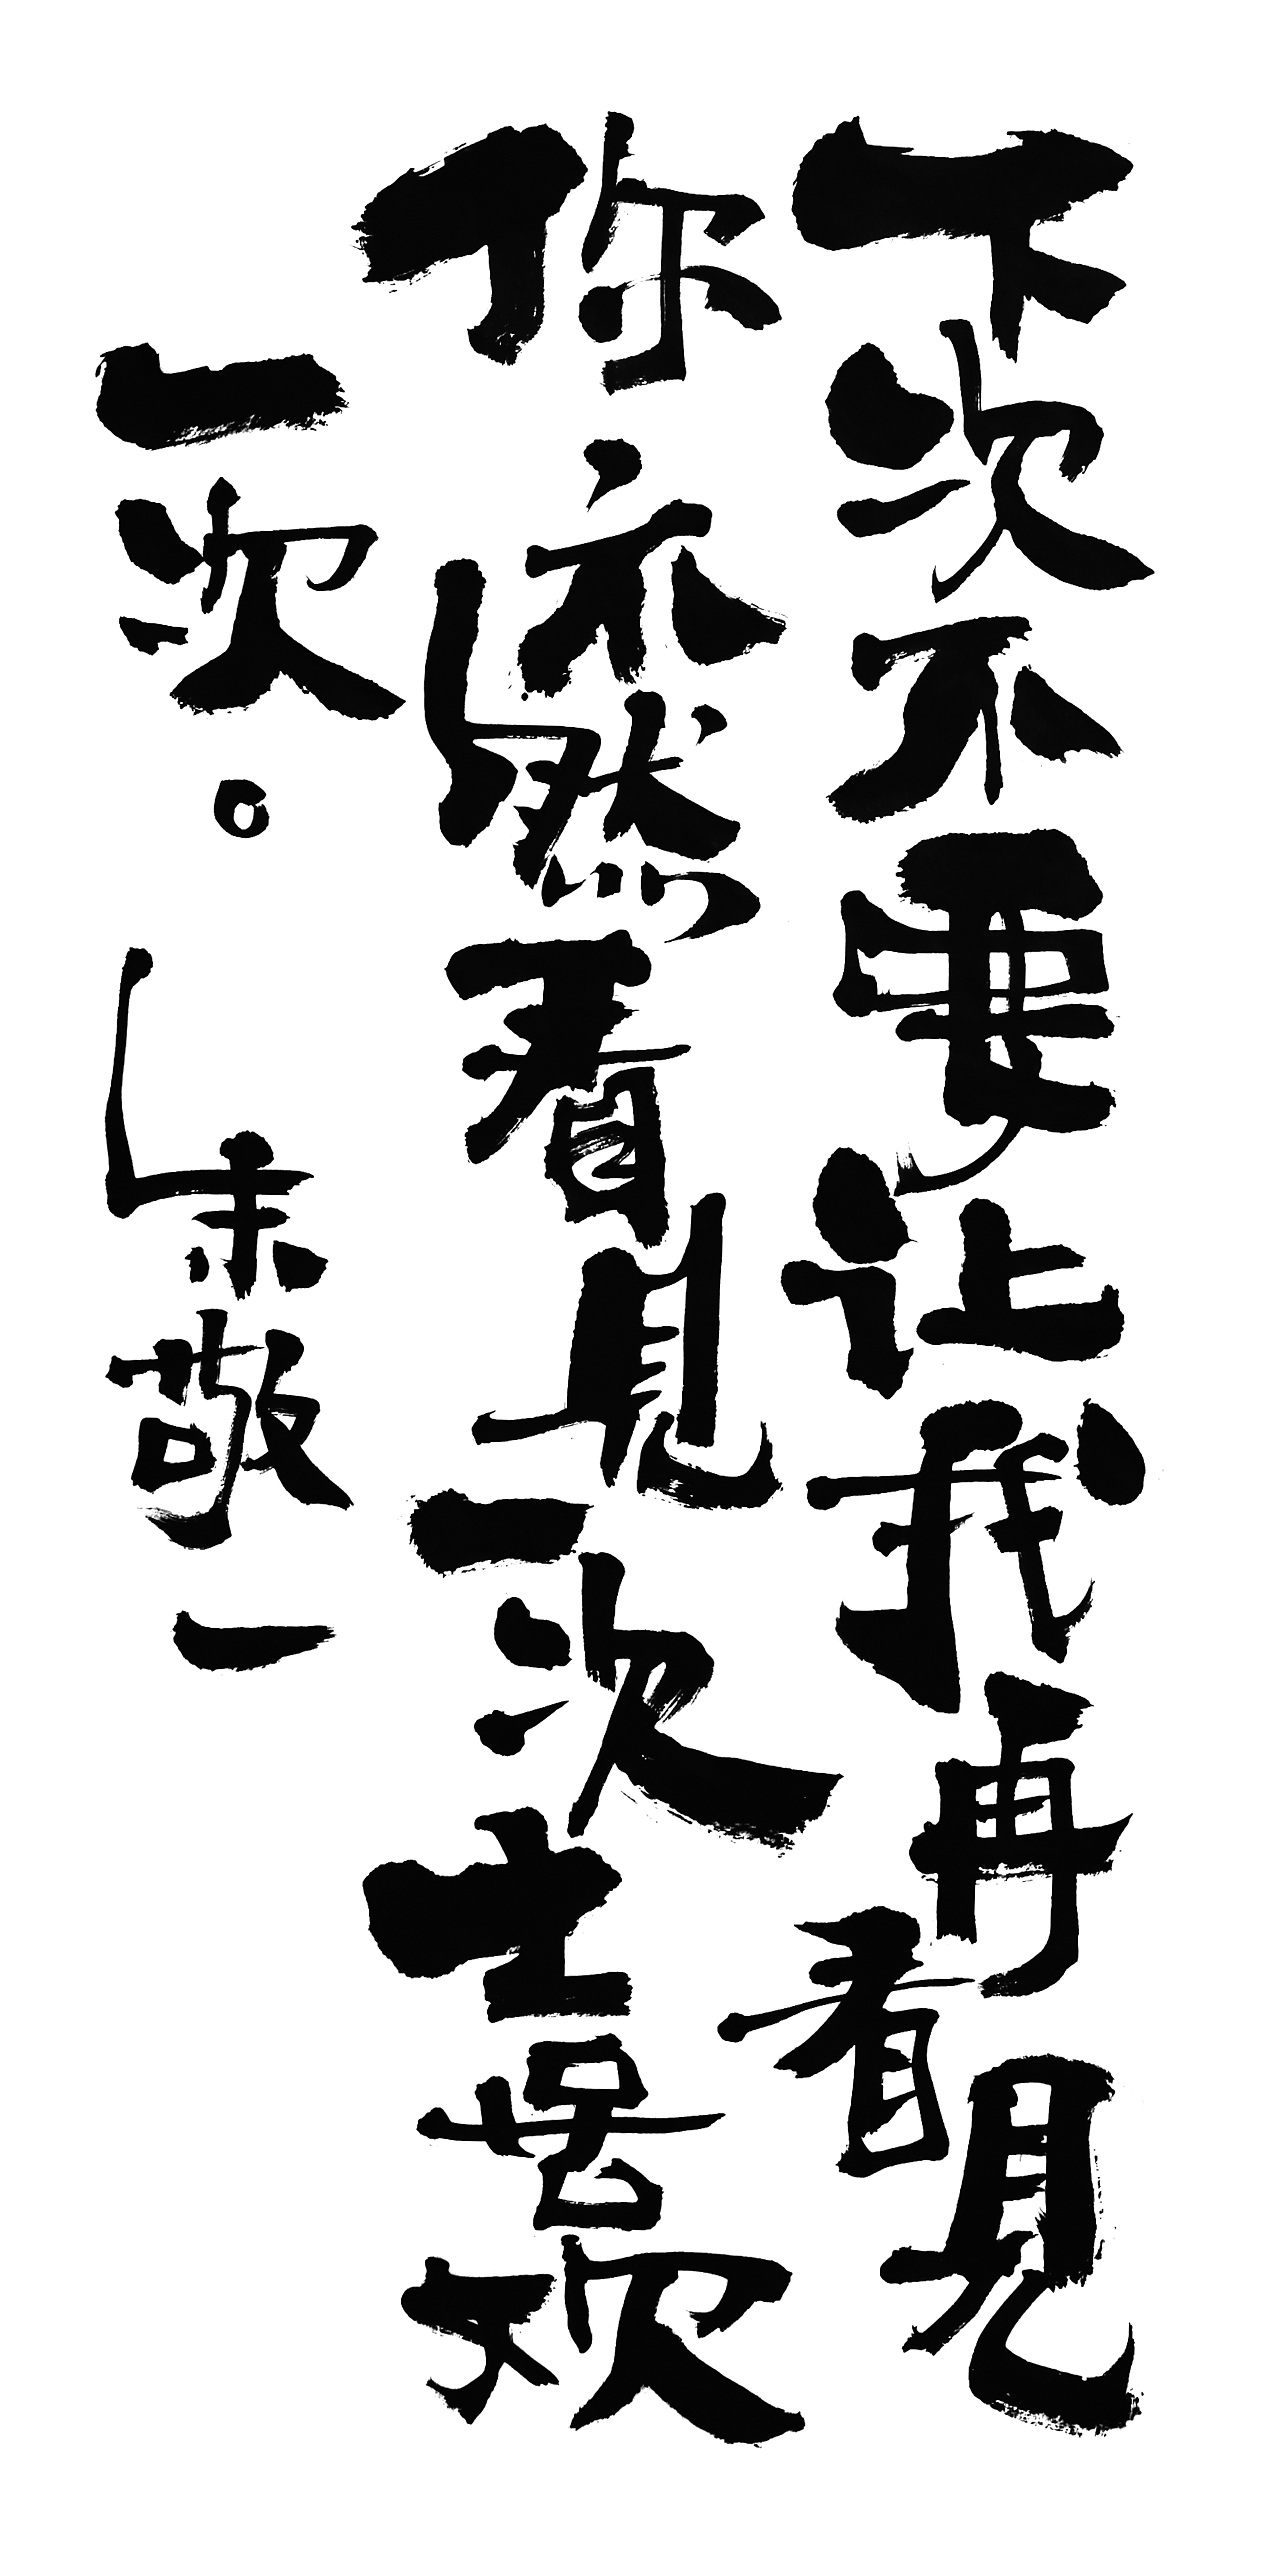 下次不要让我再看見
你依然看見一次喜欢
一次。朱敬一